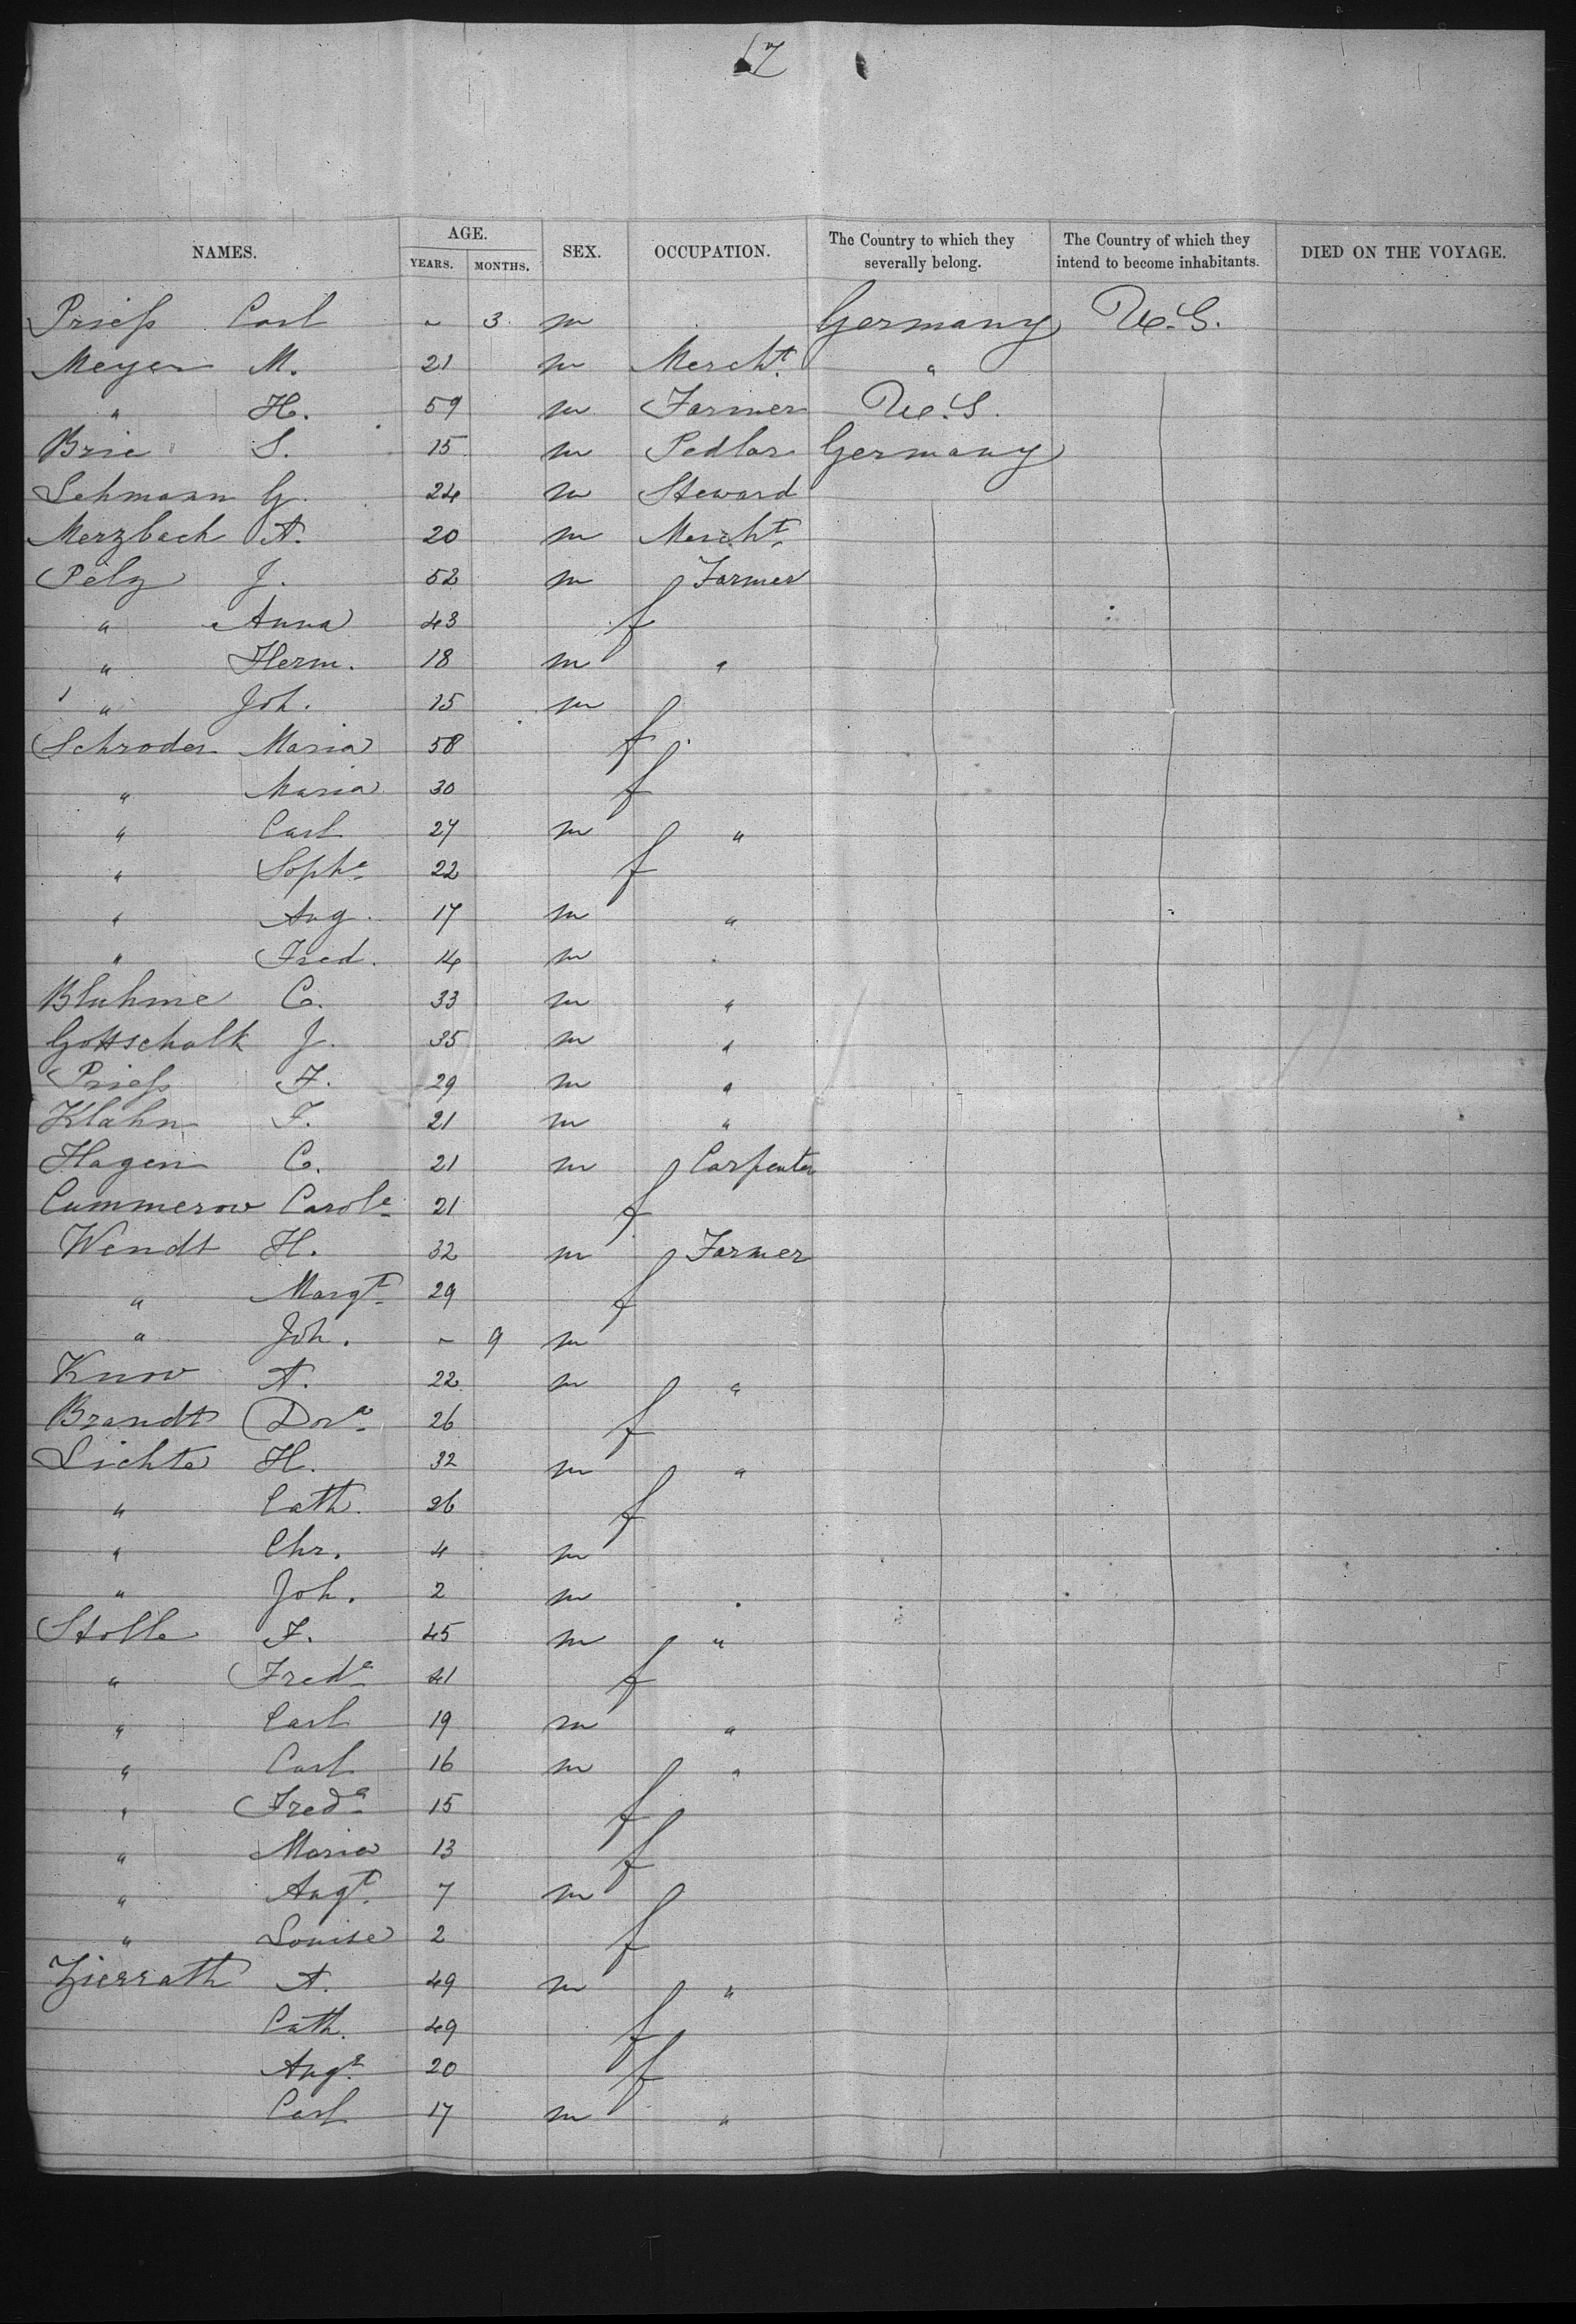 17
NAMES. AGE. YEARS. MONTHS. SEX. OCCUPATION. The Country to which they severally belong. The Country of which they intend to become inhabitants. DIED ON THE VOYAGE.
Prieß Carl - 3 m Germany U.S.
Meyer M. 21 m Merch.t "
" H. 59 m Farmer U.S.
Brie S. 15 m Pedlar Germany
Lehmann G. 24 m Steward
Merzbach A. 20 m Mercht.
Pelz J. 52 m Farmer
" Anna 43 f
" Herm. 18 m "
" Joh. 15 m
Schroder Maria 58 f
" Maria 30 f
" Carl 27 m "
" Sophe 22 f
" Aug. 17 m "
" Fred. 14 m
Bluhme C. 33 m "
Gottschalk J. 35 m "
Prieß F. 29 m "
Klahn F. 21 m "
Hagen C. 21 m Carpenter
Cummerow Carole 21 f
Wendt H. 32 m Farmer
" Margt 29 f
" Joh. - 9 m
Knov A. 22 m "
Brandt Dora 26 f
Lichte H. 32 m "
" Cath. 26 f
" Chr. 4 m
" Joh. 2 m
Stolle F. 45 m "
" Frede 41 f
" Carl 19 m "
" Carl 16 m "
" Freda 15 f
" Maria 13 f
" Augt. 7 m
" Louise 2 f
Zierrath A. 49 m "
Cath. 49 f
Auge 20 f
Carl 17 m "